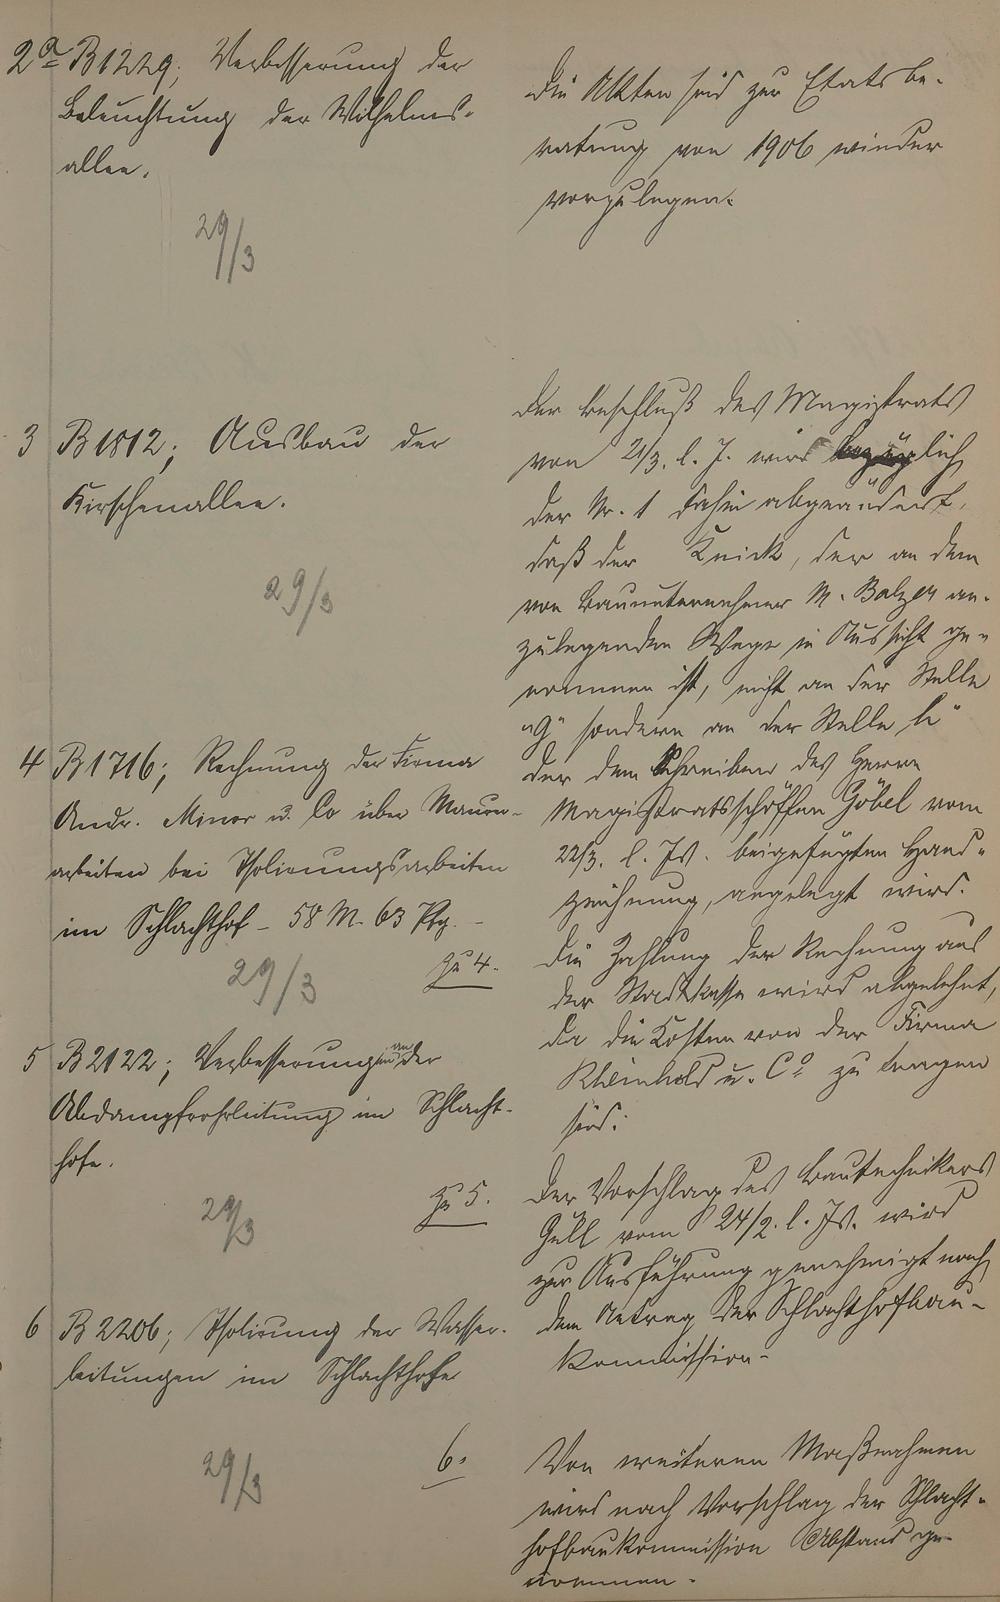 2a B1229; Verbesserung der
Beleuchtung der Wilhelms-
allee.
29/3
Die Akten sind zur Etatsbe-
ratung von 1906 wieder
vorzulegen.
3 B1812; Ausbau der
Kirschenallee.
29/3
Der Beschluß des Magistrats
von 21/3. l. J. wird bezüglich
der Nr. 1 dahin abgeändert,
daß der Knick, der an dem
von Bauunternehmer M. Balzer an-
zulegenden Wege in Aussicht ge-
nommen ist, nicht an der Stelle
"g" sondern an der Stelle "h"
der dem Schreiben des Herrn
Magistratsschöffen Göbel vom
22/3. l. Js. beigefügten Hand-
zeichnung, angelegt wird.
4 B1716; Rechnung der Firma
Andr. Minor u. Co über Mauer-
arbeiten bei Isolierungsarbeiten
im Schlachthof - 58 M. 63 Pfg. -
29/3
Zu 4.
Die Zahlung der Rechnung aus
der Stadtkasse wird abgelehnt,
da die Kosten von der Firma
Rheinhold u. Co zu tragen
sind.
5 B2122; Verbesserungen an der
Abdampfrohrleitung im Schlacht-
hofe.
29/3
Zu 5.
Der Vorschlag des Bautechnikers
Güll vom 24/2. l. Js. wird
zur Ausführung genehmigt nach
dem Antrag der Schlachthofbau-
kommission.
6 B2206; Isolirung der Wasser-
leitungen im Schlachthofe
29/3
6.
Von weiteren Maßnahmen
wird nach Vorschlag der Schlacht-
hofbaukommission Abstand ge-
nommen.